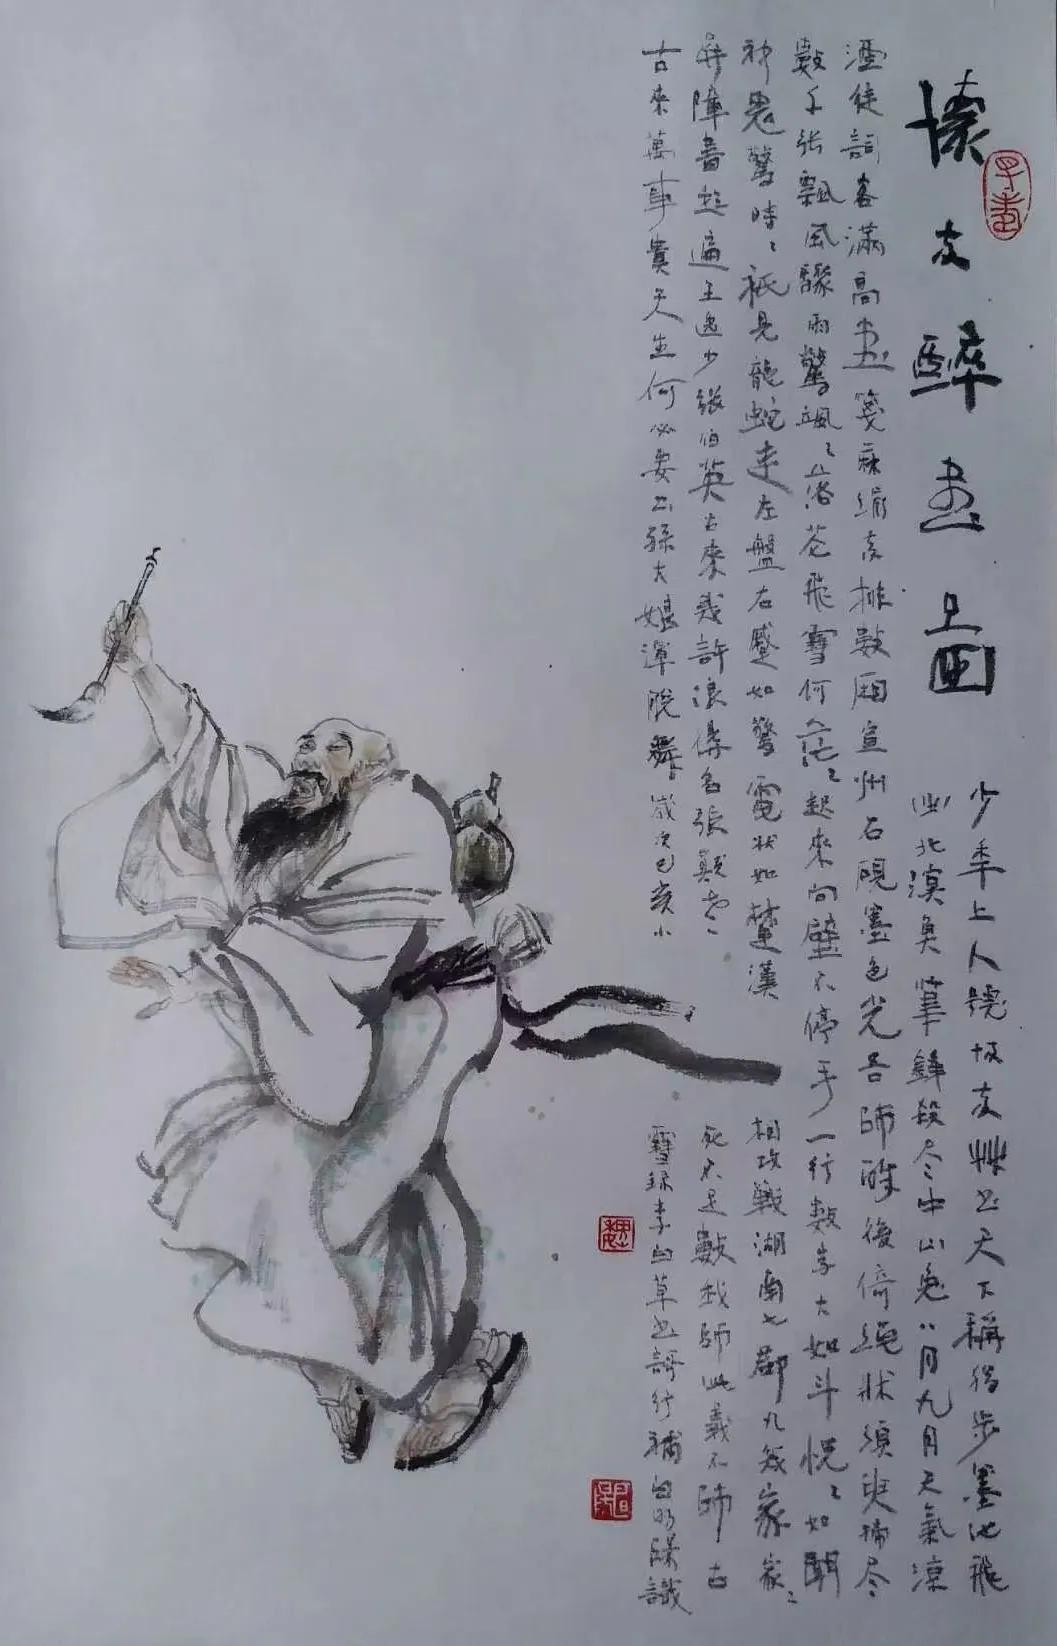 懷素醉書圖
少年上人號懷素草書天下稱獨步墨池飛
出北溟魚筆鋒殺盡中山兔八月九月天氣涼
酒徒詞客滿高堂箋麻絹素排數厢宣州石硯墨色光吾師醉後倚繩牀須臾掃盡
數千张飄風驟雨驚颯〻落花飛雪何茫〻起來向壁不停手一行數字大如斗怳〻如聞
神鬼驚時〻秖見龍蛇走左盤右蹙如驚電狀如楚漢相攻戰湖南七郡凡幾家家〻
屏障書題遍王逸少張伯英古來幾許浪傳名張顛老死不足數我師此義不師古
古來萬事貴天生何必要公孫大娘渾脫舞歲次己亥小雪錄李白草書歌行補白識